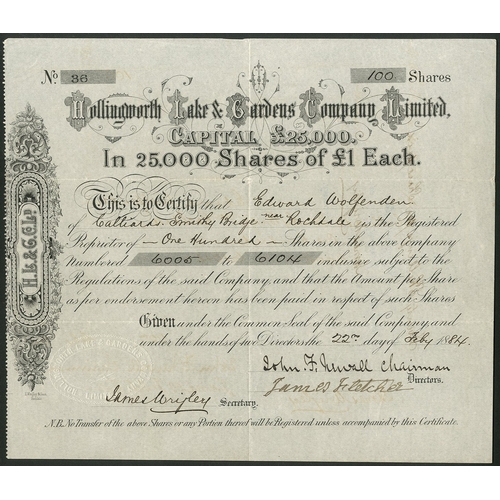 No 36 100 Shares
Hollingworth Lake & Gardens Company Limited,
CAPITAL £25,000.
In 25,000 Shares of £1 Each.
This is to Certify that Edward Wolfenden
of Calliards Smithy Bridge near Rochdale is the Registered
Proprietor of — One Hundred — Shares in the above Company
Numbered 6005 to 6104 inclusive subject to the
Regulations of the said Company, and that the Amount per Share
as per endorsement hereon has been paid in respect of such Shares
Given under the Common Seal of the said Company, and
under the hands of two Directors the 22nd day of Feby 1884.
John F. Newall Chairman
Directors.
James Fletcher
James Wrigley
Secretary.
N.B. No Transfer of the above Shares or any Portion thereof will be Registered unless accompanied by this Certificate.
H.L. & G.C. Ld.